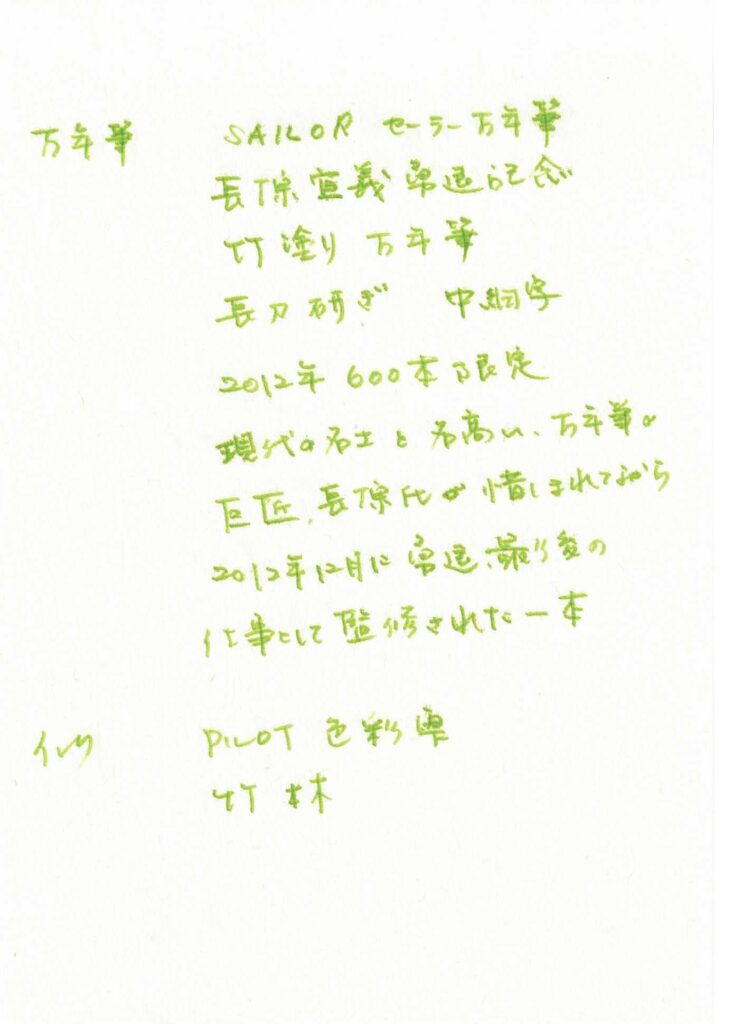 万年筆 SAILOR セーラー万年筆
長原宣義 勇退記念
竹塗り 万年筆
長刀研ぎ 中細字
2012年 600本限定
現代の名士と名高い、万年筆の
巨匠、長原氏が惜しまれてながら
2012年12月に勇退、最後の
仕事として監修された一本
インク PILOT 色彩雫
竹林